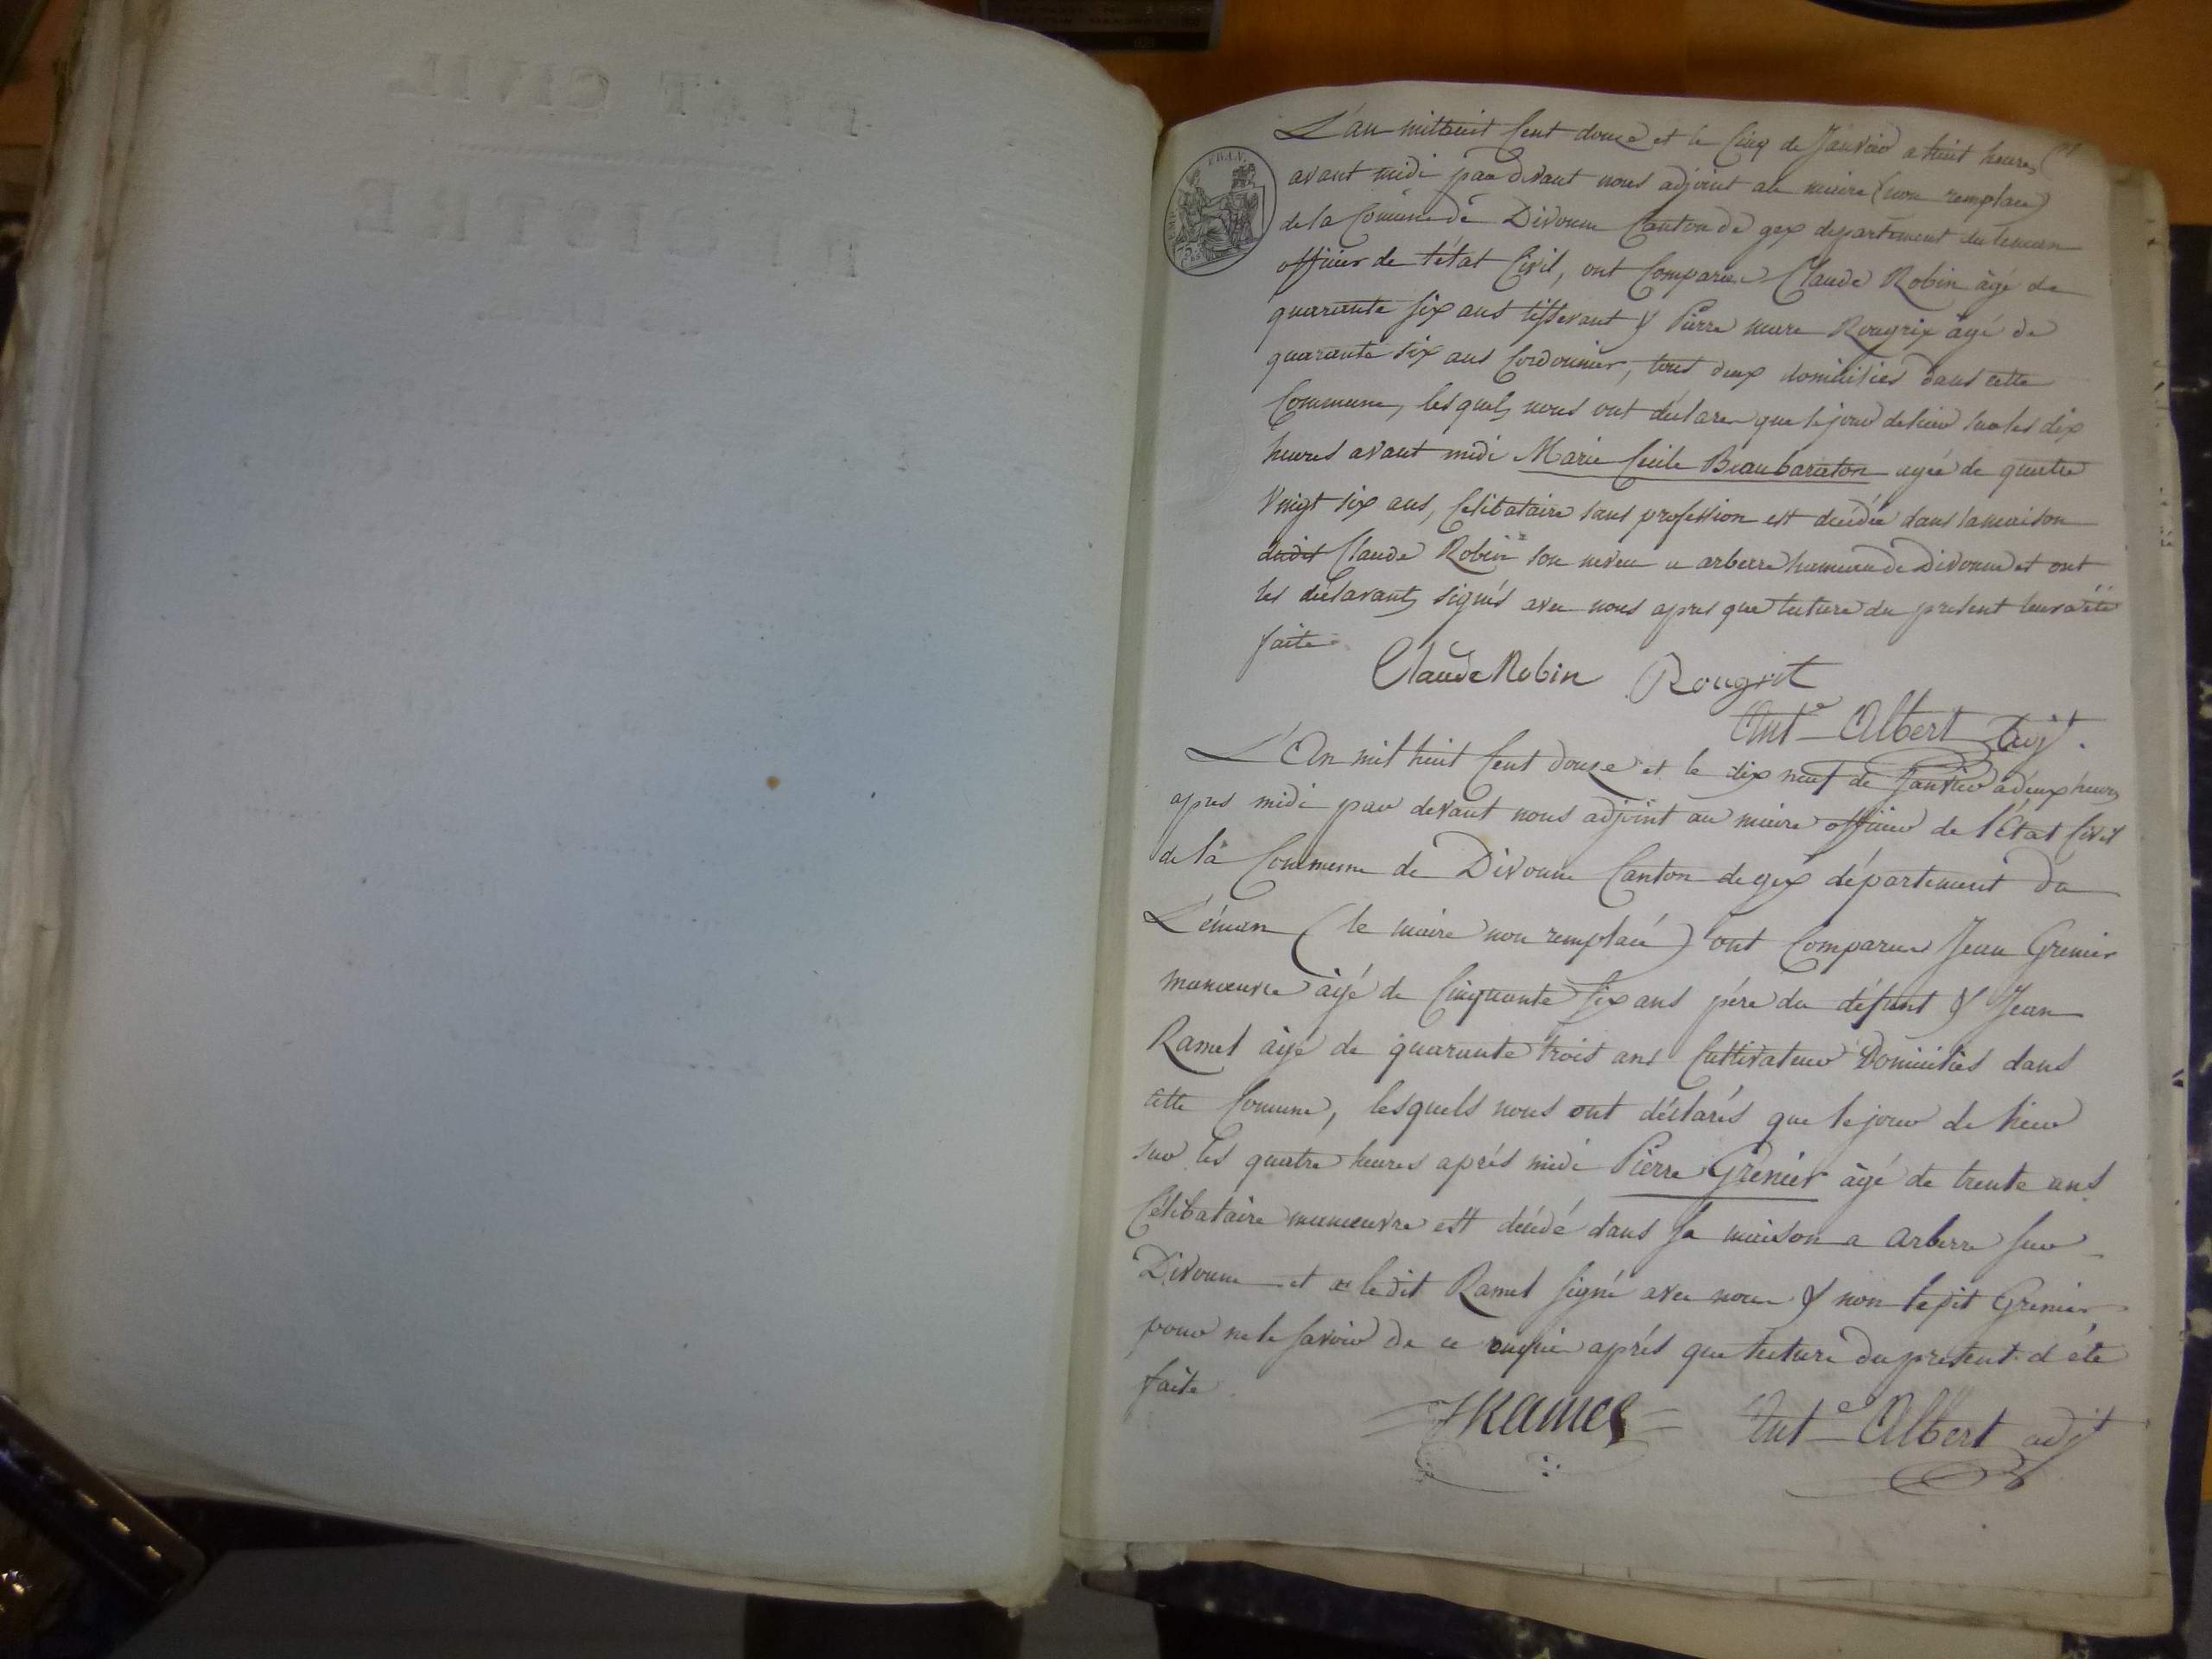 L'an mil huit Cent douze et le Cinq de Janvier a huit heures
avant midi par devant nous adjoint au maire (non remplacé)
de la Comune de Divonne Canton de gex departement du leman
officier de l'état Civil, ont Comparu Claude Robin âgé de
quarante six ans tisserant & Pierre marc Rougrix âgé de
quarante six ans Cordonnier, tous deux domiciliés dans cette
Commune, lesquels nous ont déclarer que le jour de hier sur les dix
heures avant midi Marie Cecile Beaubaraton agée de quatre
Vingt six ans, Celibataire sans profession est décédée dans la maison
dudit Claude Robin son neveu a arberre hameau de Divonne et ont
les déclarants signés avec nous apres que lecture du present leur a été
faite
Claude Robin Rougrit
Ant.e Albert Adjt.
L'An mil huit Cent douze et le dix neuf de Janvier a deux heures
apres midi par devant nous adjoint au maire officier de l'État Civil
de la Commune de Divonne Canton de gex département du
Léman (le maire non remplacé) ont Comparu Jean Grenier
manœuvre âgé de Cinquante six ans père du défunt & Jean
Ramel âgé de quarante trois ans Cultivateur Domiciliés dans
cette Comune, lesquels nous ont déclarés que le jour de hier
sur les quatre heures après midi Pierre Grenier âgé de trente ans
Célibataire manœuvre est décédé dans sa maison a Arberre sur
Divonne et a ledit Ramel signé avec nous & non le dit Grenier
pour ne le savoir de ce enquis après que lecture du present a été
faite
JRamel Ant.e Albert adjt
ETAT CIVIL
REGISTRE